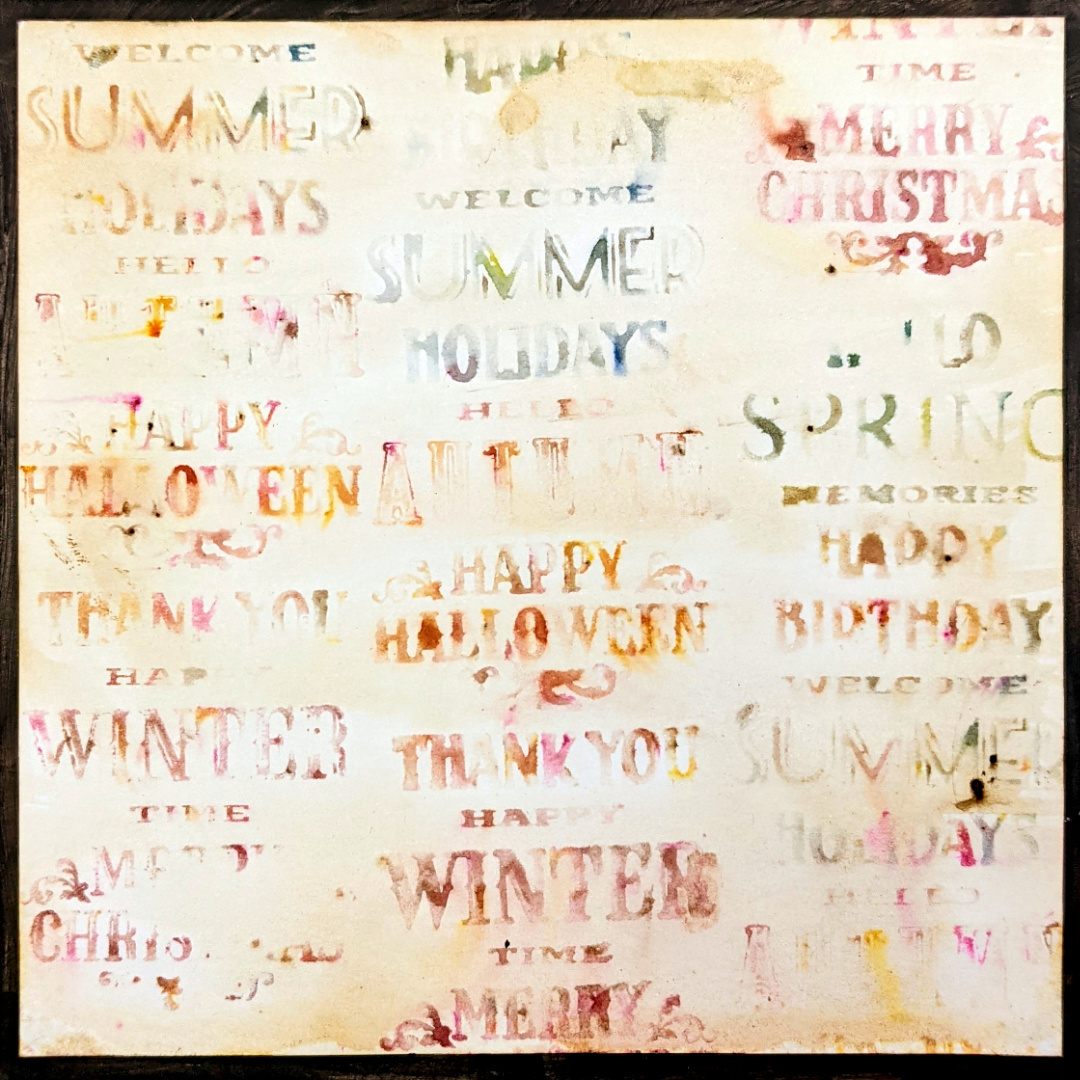 WELCOME
SUMMER
HOLIDAYS
HELLO
AUTUMN
HAPPY
HALLOWEEN
THANK YOU
HAPPY
WINTER
TIME
MERRY
CHRISTMAS
HAPPY
BIRTHDAY
WELCOME
SUMMER
HOLIDAYS
HELLO
AUTUMN
HAPPY
HALLOWEEN
THANK YOU
HAPPY
WINTER
TIME
MERRY
WINTER
TIME
MERRY
CHRISTMAS
SPRING
MEMORIES
HAPPY
BIRTHDAY
WELCOME
SUMMER
HOLIDAYS
HELLO
AUTUMN